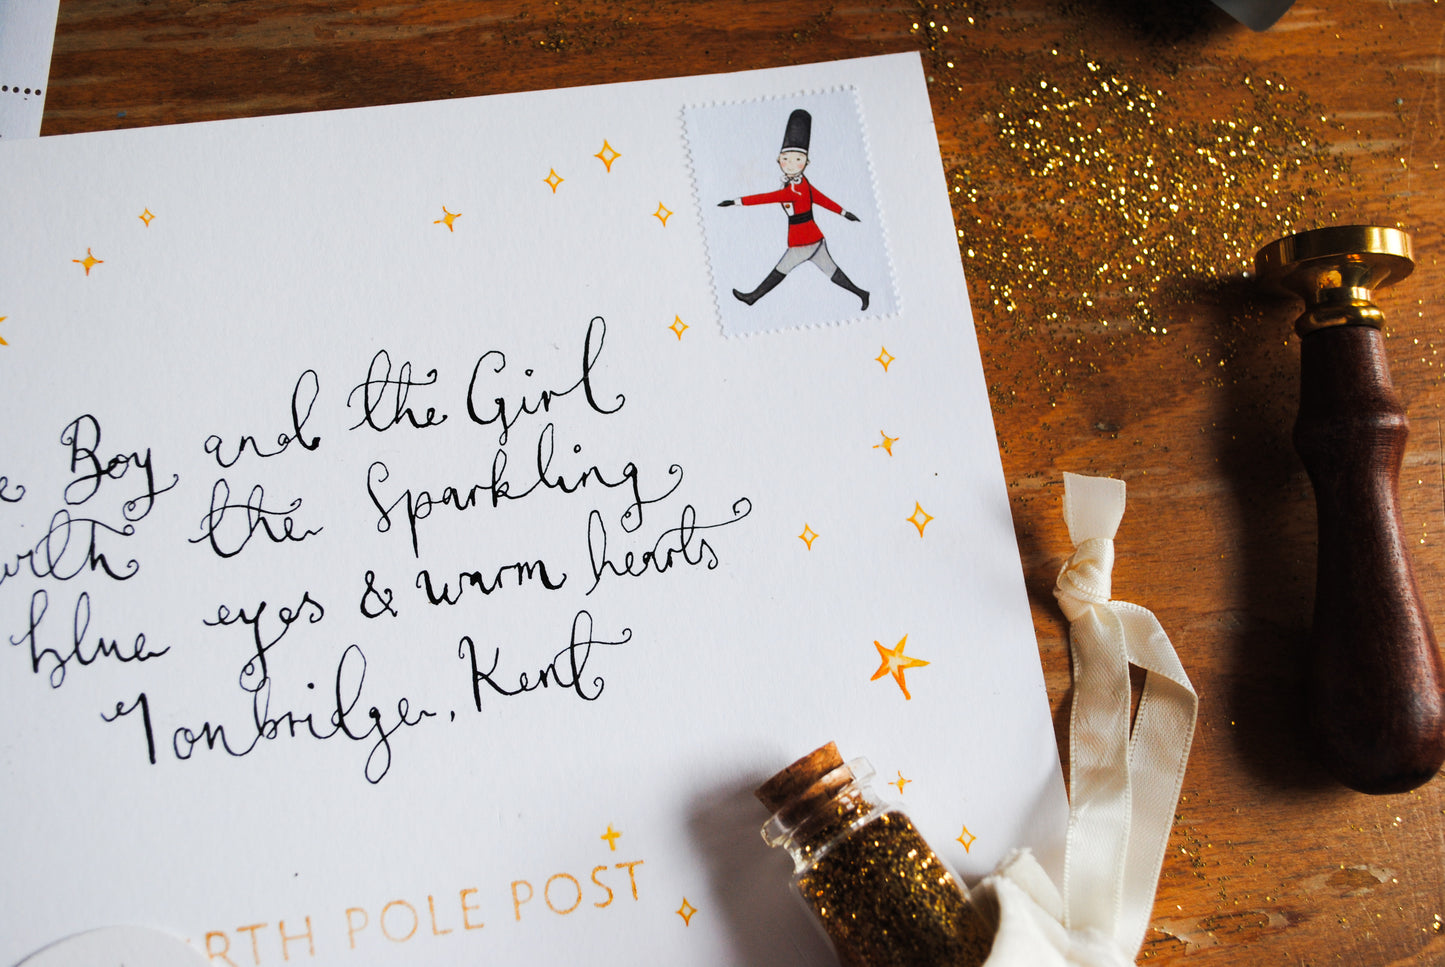 Boy and the Girl
with the Sparkling
blue eyes & warm hearts
Tonbridge, Kent
RTH POLE POST